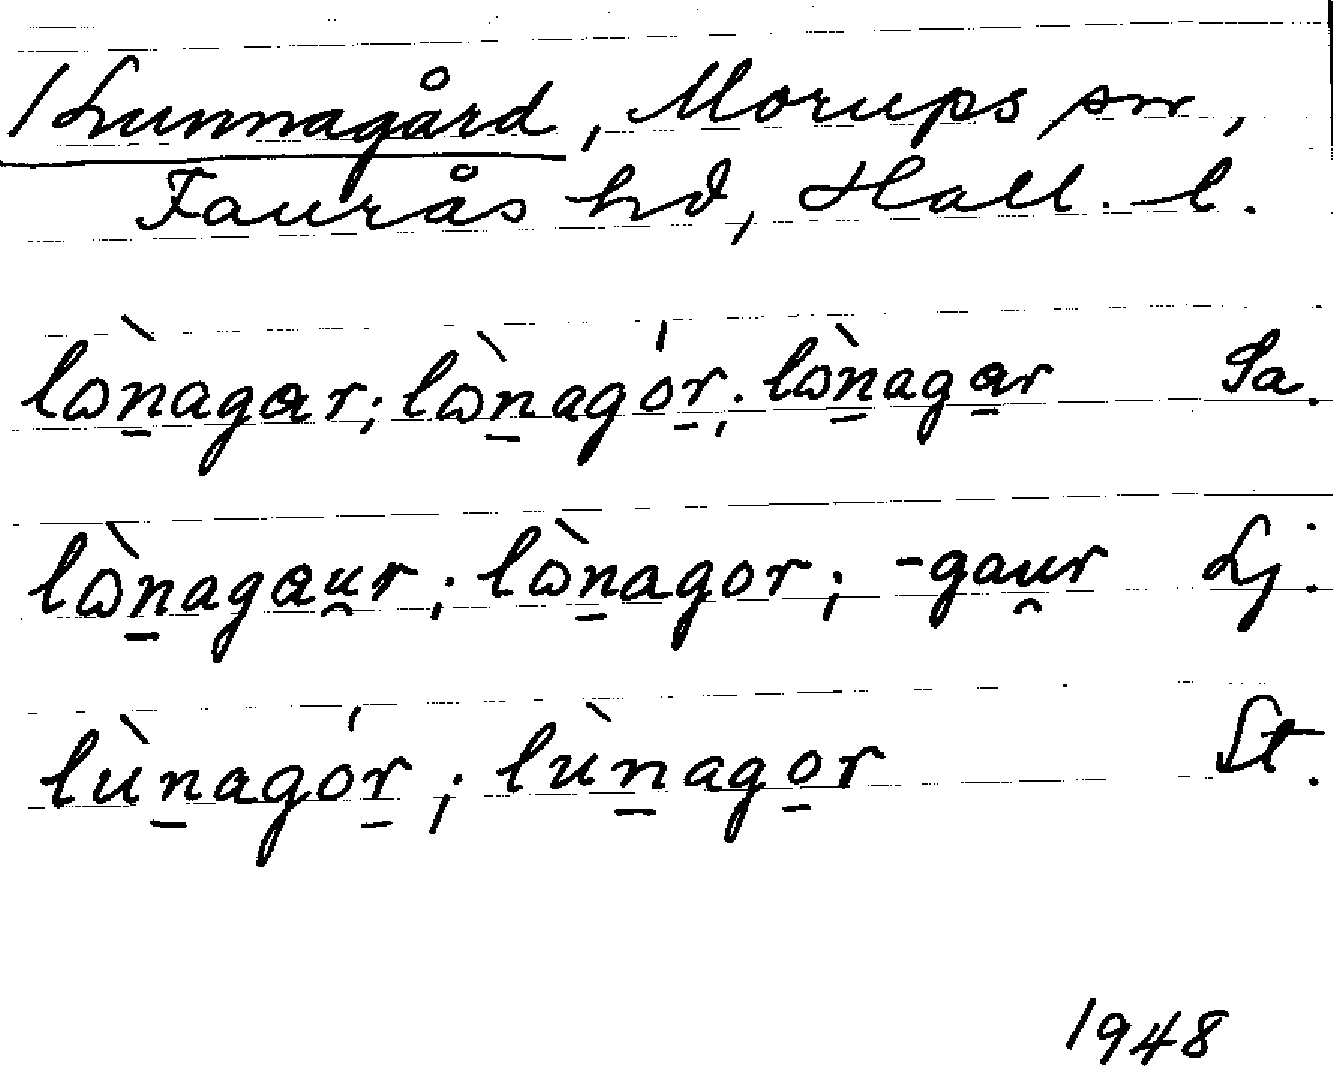 / Lunnagård, Morups sn,
Faurås hd, Hall. l.
lɷ̀n̠agɑr; lɷ̀n̠agór̠; lɷ̀n̠agɑ̠r Sa.
lɷ̀n̠agɑu̯r; lɷ̀n̠agor; -gau̯r Lj.
lùn̠agór̠; lùn̠ago̠r St.
1948